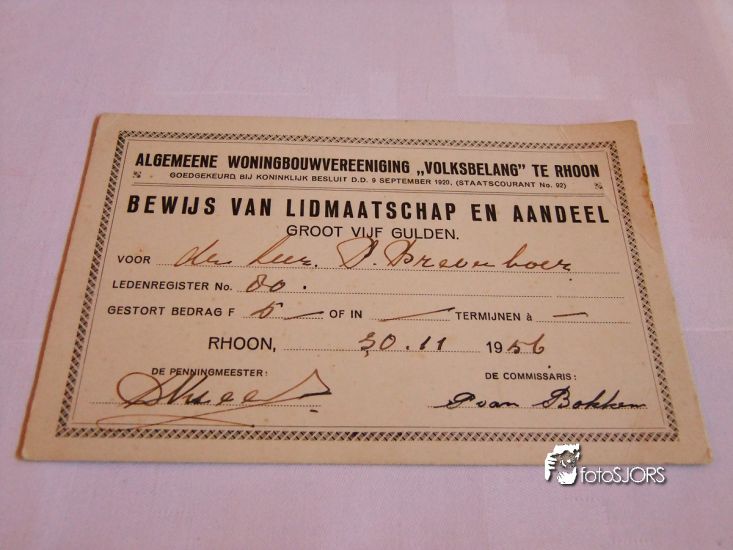 ALGEMEENE WONINGBOUWVEREENIGING „VOLKSBELANG” TE RHOON
GOEDGEKEURD BIJ KONINKLIJK BESLUIT D.D. 9 SEPTEMBER 1920, (STAATSCOURANT No. 92)
BEWIJS VAN LIDMAATSCHAP EN AANDEEL
GROOT VIJF GULDEN.
VOOR de heer P.
LEDENREGISTER No. 80.
GESTORT BEDRAG F 5 OF IN — TERMIJNEN à —
RHOON, 30.11 1956
DE PENNINGMEESTER: DE COMMISSARIS:
P van Bokken
fotoSJORS